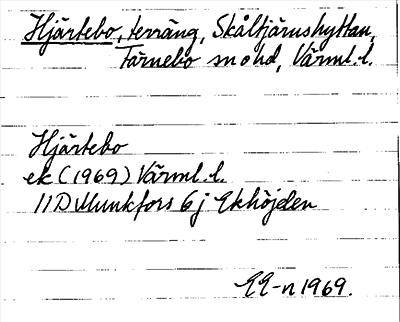 Hjärtebo, terräng, Skåltjärnshyttan,
Färnebo sn o hd, Värml. l.
Hjärtebo
ek (1969) Värml. l.
11D Munkfors 6j Ekhöjden
EE-n 1969.